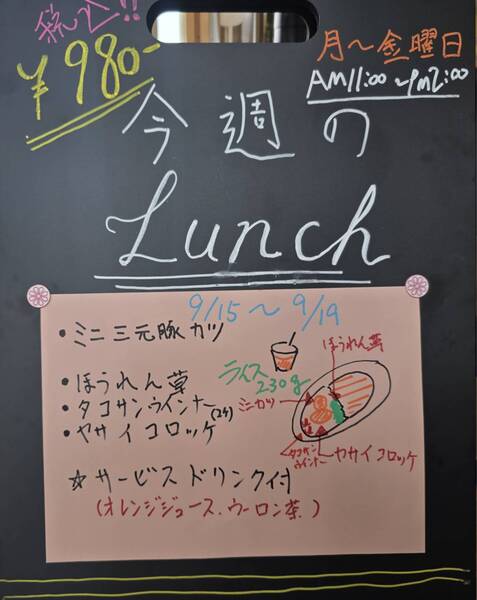 税込!!
¥980-
月〜金曜日
AM11:00〜PM2:00
今週の
Lunch
9/15〜9/19
・ミニ三元豚カツ
・ほうれん草
・タコサンウインナー(2ケ)
・ヤサイコロッケ
☆サービスドリンク付
(オレンジジュース、ウーロン茶)
ほうれん草
ライス
230g
ミニカツ
タコサン
ウインナー
ヤサイコロッケ